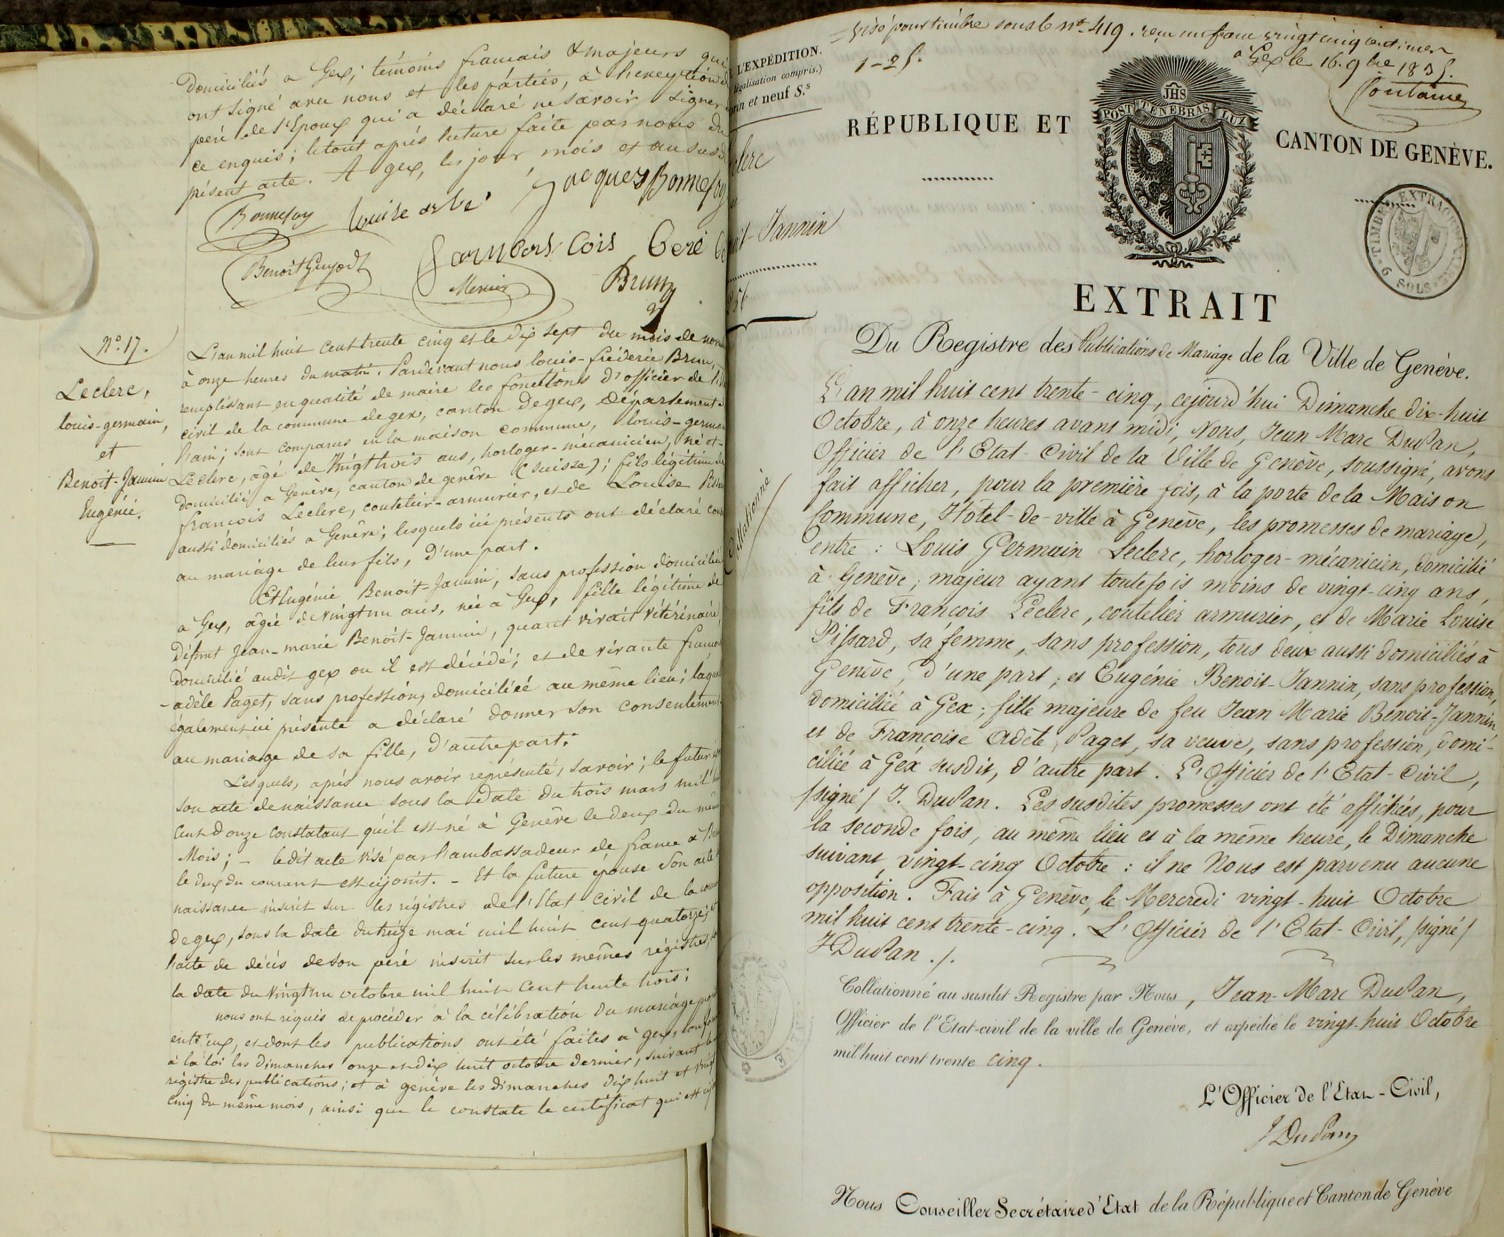 domiciliés a Gex; témoins français & majeurs qui
ont signé avec nous et les parties, à l'exception du
père de l'Epoux qui a déclaré ne savoir signer
ce enquis; le tout après lecture faite par nous du
présent acte. A gex, les jour mois et an susd
Bonnefoy Louise Jacques Bonnefoy
Benoit Guyod Cois Gere
Mercier Brun
N.º 17.
Leclerc,
louis-germain,
et
Benoit-Jannin
Eugénie.
L'an mil huit cent trente cinq et le dix sept du mois de nov
à onze heures du matin. Pardevant nous louis-fréderic Brun,
remplissant en qualité de maire les fonctions d'officier de l'
civil de la commune de gex, canton de gex, département
l'ain; sont comparus en la maison commune, louis-germain
Leclerc, âgé de vingt trois ans, horloger-mécanicien, né et
domicilié a Genêve, canton de genêve (Suisse); fils légitime de
françois Leclerc, coutelier-armurier, et de Louise
aussi domiciliés a Genêve; lesquels ici présents ont déclaré
au mariage de leur fils, d'une part.
Et Eugénie Benoit-Jannin, sans profession domiciliée
a Gex, âgée de vingt un ans, née a Gex, fille légitime de
défunt Jean-marie Benoit-Jannin, quand vivait vétérinaire
domicilié audit gex ou il est décédé; et de vivante françoise
-adèle Paget, sans profession, domiciliée au même lieu; laquelle
également ici présente a déclaré donner son consentement
au mariage de sa fille, d'autre part.
Lesquels, après nous avoir représenté, savoir; le futur
son acte de naissance sous la date du trois mars mil
cent douze constatant qu'il est né à Genêve le deux du même
Mois; - ledit acte visé par l'ambassadeur de france a
le deux du courant est cijoint. - Et la future épouse son acte
naissance inscrit sur les régistres de l'Etat civil de la
de gex, sous la date du treize mai mil huit cent quatorze;
l'acte de décès de son père inscrit sur les mêmes régistres
la date du vingt un octobre mil huit cent trente trois;
nous ont requis de procéder à la célébration du mariage
entr'eux, et dont les publications ont été faites a gex,
à la loi les dimanches onze et dix huit octobre dernier, suivant
régistre des publications; et à genêve les dimanches dix huit et vingt
cinq du même mois, ainsi que le constate le certificat qui est
Visé pour timbre sous le nº 419. reçu un franc vingt cinq centimes
à Gex le 16. 9bre 1835.
Fontaine
L'EXPÉDITION.
(légalisation compris.)
et neuf S.s
RÉPUBLIQUE ET
JHS
POST TENEBRAS LUX
CANTON DE GENÈVE.
TIMBRE EXTRAORDINAIRE
6 SOLS
lerc
Jannin
Collationné
EXTRAIT
Du Registre des Publications de Mariage de la Ville de Genève.
L'an mil huit cent trente-cinq, cejourd'hui Dimanche dix-huit
Octobre, à onze heures avant midi, Nous, Jean Marc DuPan,
Officier de l'Etat-Civil de la Ville de Genève, soussigné, avons
fait afficher, pour la première fois, à la porte de la Maison
Commune, Hôtel-de-ville à Genève, les promesses de mariage,
entre: Louis Germain Leclerc, horloger-mécanicien, domicilié
à Genève, majeur ayant toutefois moins de vingt-cinq ans,
fils de François Leclerc, coutelier armurier, et de Marie Louise
Pissard, sa femme, sans profession, tous deux aussi domiciliés à
Genève, d'une part; et Eugénie Benoit-Jannin, sans profession,
domiciliée à Gex; fille majeure de feu Jean Marie Benoit-Jannin
et de Françoise Adèle Paget, sa veuve, sans profession, domi-
ciliée à Géx susdit, d'autre part. L'Officier de l'Etat-Civil,
/signé/ J. DuPan. Les susdites promesses ont été affichées, pour
la seconde fois, au même lieu et à la même heure, le Dimanche
suivant, vingt cinq Octobre: il ne Nous est parvenu aucune
opposition. Fait à Genève, le Mercredi vingt-huit Octobre
mil huit cent trente-cinq. L'Officier de l'Etat-Civil, /signé/
J DuPan ./.
Collationné au susdit Registre par Nous, Jean-Marc DuPan,
Officier de l'Etat-civil de la ville de Genève, et expédié le vingt huit Octobre
mil huit cent trente cinq.
L'Officier de l'Etat-Civil,
J DuPan
Nous Conseiller Secrétaire d'Etat de la République et Canton de Genève